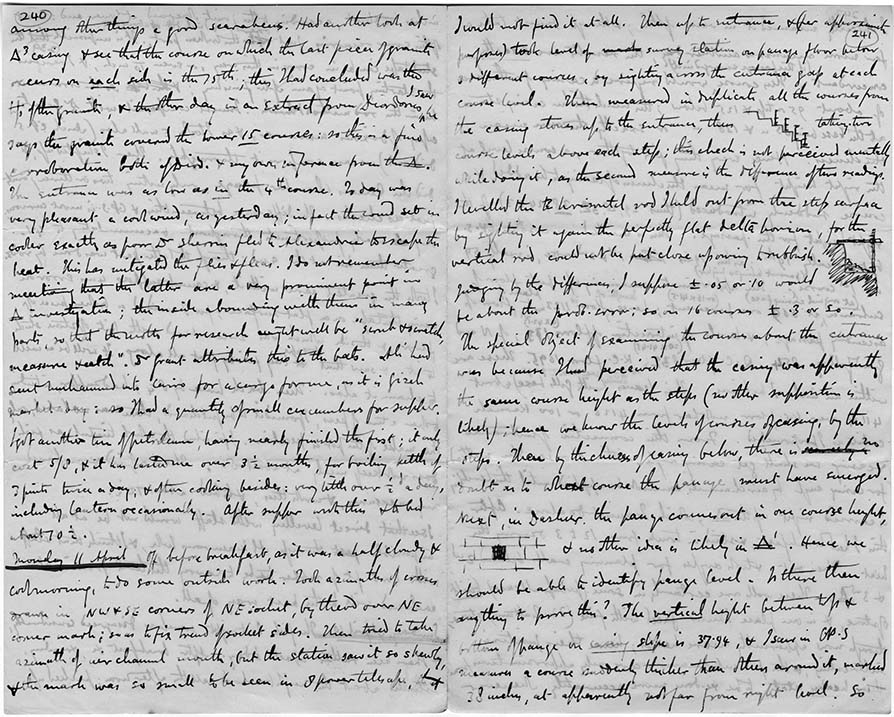 240
among other things a good scarabeus. Had another look at
Δ³ casing & see that the course on which the last piece of granite
occurs on each side is the 15th, this I had concluded was the
of the granite, & the other day in an extract from Diodoros I saw
says the granite covered the lower 15 courses: so this is a fine
corroboration both of Diod. & my own inference from the Δ.
The entrance was as low as in the 4th course. To day was
very pleasant a cool wind, as yesterday; in fact the wind set in
cooler exactly as poor Dr Sherrin fled to Alexandria to escape the
heat. This has mitigated the flies & fleas. I do not remember
mention that the latter are a very prominent point in
Δ investigation; the inside abounding with them in many
parts, so that the motto for research might well be "scrub & scratch,
measure & catch". Dr Grant attributes this to the bats. Ali had
sent Muhammed into Cairo for a cargo for me, as it is Gizeh
market day: so I had a quantity of small cucumbers for supper.
I got another tin of petroleum having nearly finished the first; it only
cost 5/8, & it has lasted me over 3½ months, for boiling kettle of
3 pints twice a day, & often cooking besides: very little over ½d a day,
including lantern occasionally. After supper wrote this & to bed
about 10½.
Monday 11 April Off before breakfast, as it was a half cloudy &
cool morning, to do some outside work. Took azimuths of crosses
drawn in NW & SE corners of NE socket, by thread over NE
corner mark; so as to fix trend of socket sides. Then tried to take
azimuth of air channel mouth, but the station saw it so slantly,
& the mark was so small to be seen in 8 power telescope, that
241
I would not find it at all. Then up to entrance, & (for approximate
purposes) took level of survey station on passage floor below
3 different courses, by sighting across the entrance gap at each
course level. Then measured in duplicate all the courses from
the casing stones up to the entrance, thus taking two
course levels above each step; this check is not perceived mentally
while doing it, as the second measure is the difference of two readings.
I levelled the horizontal rod I held out from the step surface
by sighting it again the perfectly flat delta horizon, for the
vertical rod could not be put close up owing to rubbish.
Judging by the differences, I suppose ± .05 or .10 would
be about the prob. error; so in 16 courses ± .3 or so.
The special object of examining the courses about the entrance
was because I had perceived that the casing was apparently
the same course height as the steps (no other supposition is
likely); hence we know the levels of courses of casing, by the
steps. Then by thickness of casing below, there is no
doubt as to what course the passage must have emerged.
Next, in Dashur. the passage comes out in one course height,
& no other idea is likely in Δ¹. Hence we
should be able to identify passage level. Is there then
anything to prove this? The vertical height between top &
bottom of passage on casing slope is 37.94, & I saw in CP.S
measures a course suddenly thicker than others around it, marked
38 inches, at apparently not far from right level. So